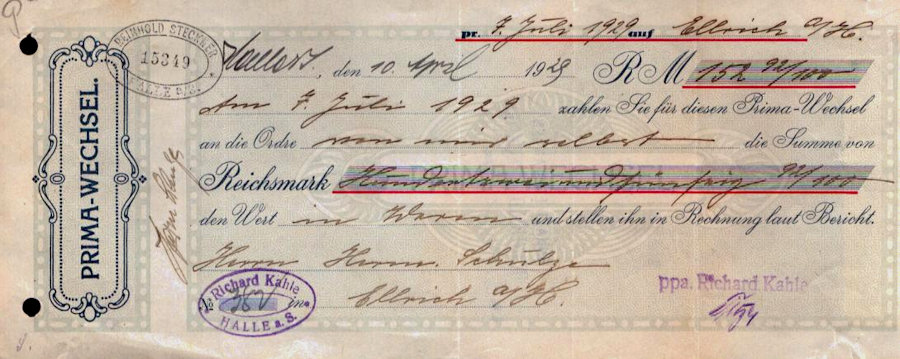 pr. 7. Juli 1929 auf Ellrich a/H.
REINHOLD STECKNER
15349
HALLE a/S.
Halle a/S, den 10. April 1929 RM 152 92/100
Am 7. Juli 1929 zahlen Sie für diesen Prima-Wechsel
an die Ordre von mir selbst die Summe von
Reichsmark Hundertzweiundfünfzig 92/100
den Wert in Waren und stellen ihn in Rechnung laut Bericht.
Herrn Herm. Schulze
Ellrich a/H.
PRIMA-WECHSEL.
Richard Kahle
HALLE a. S.
ppa. Richard Kahle